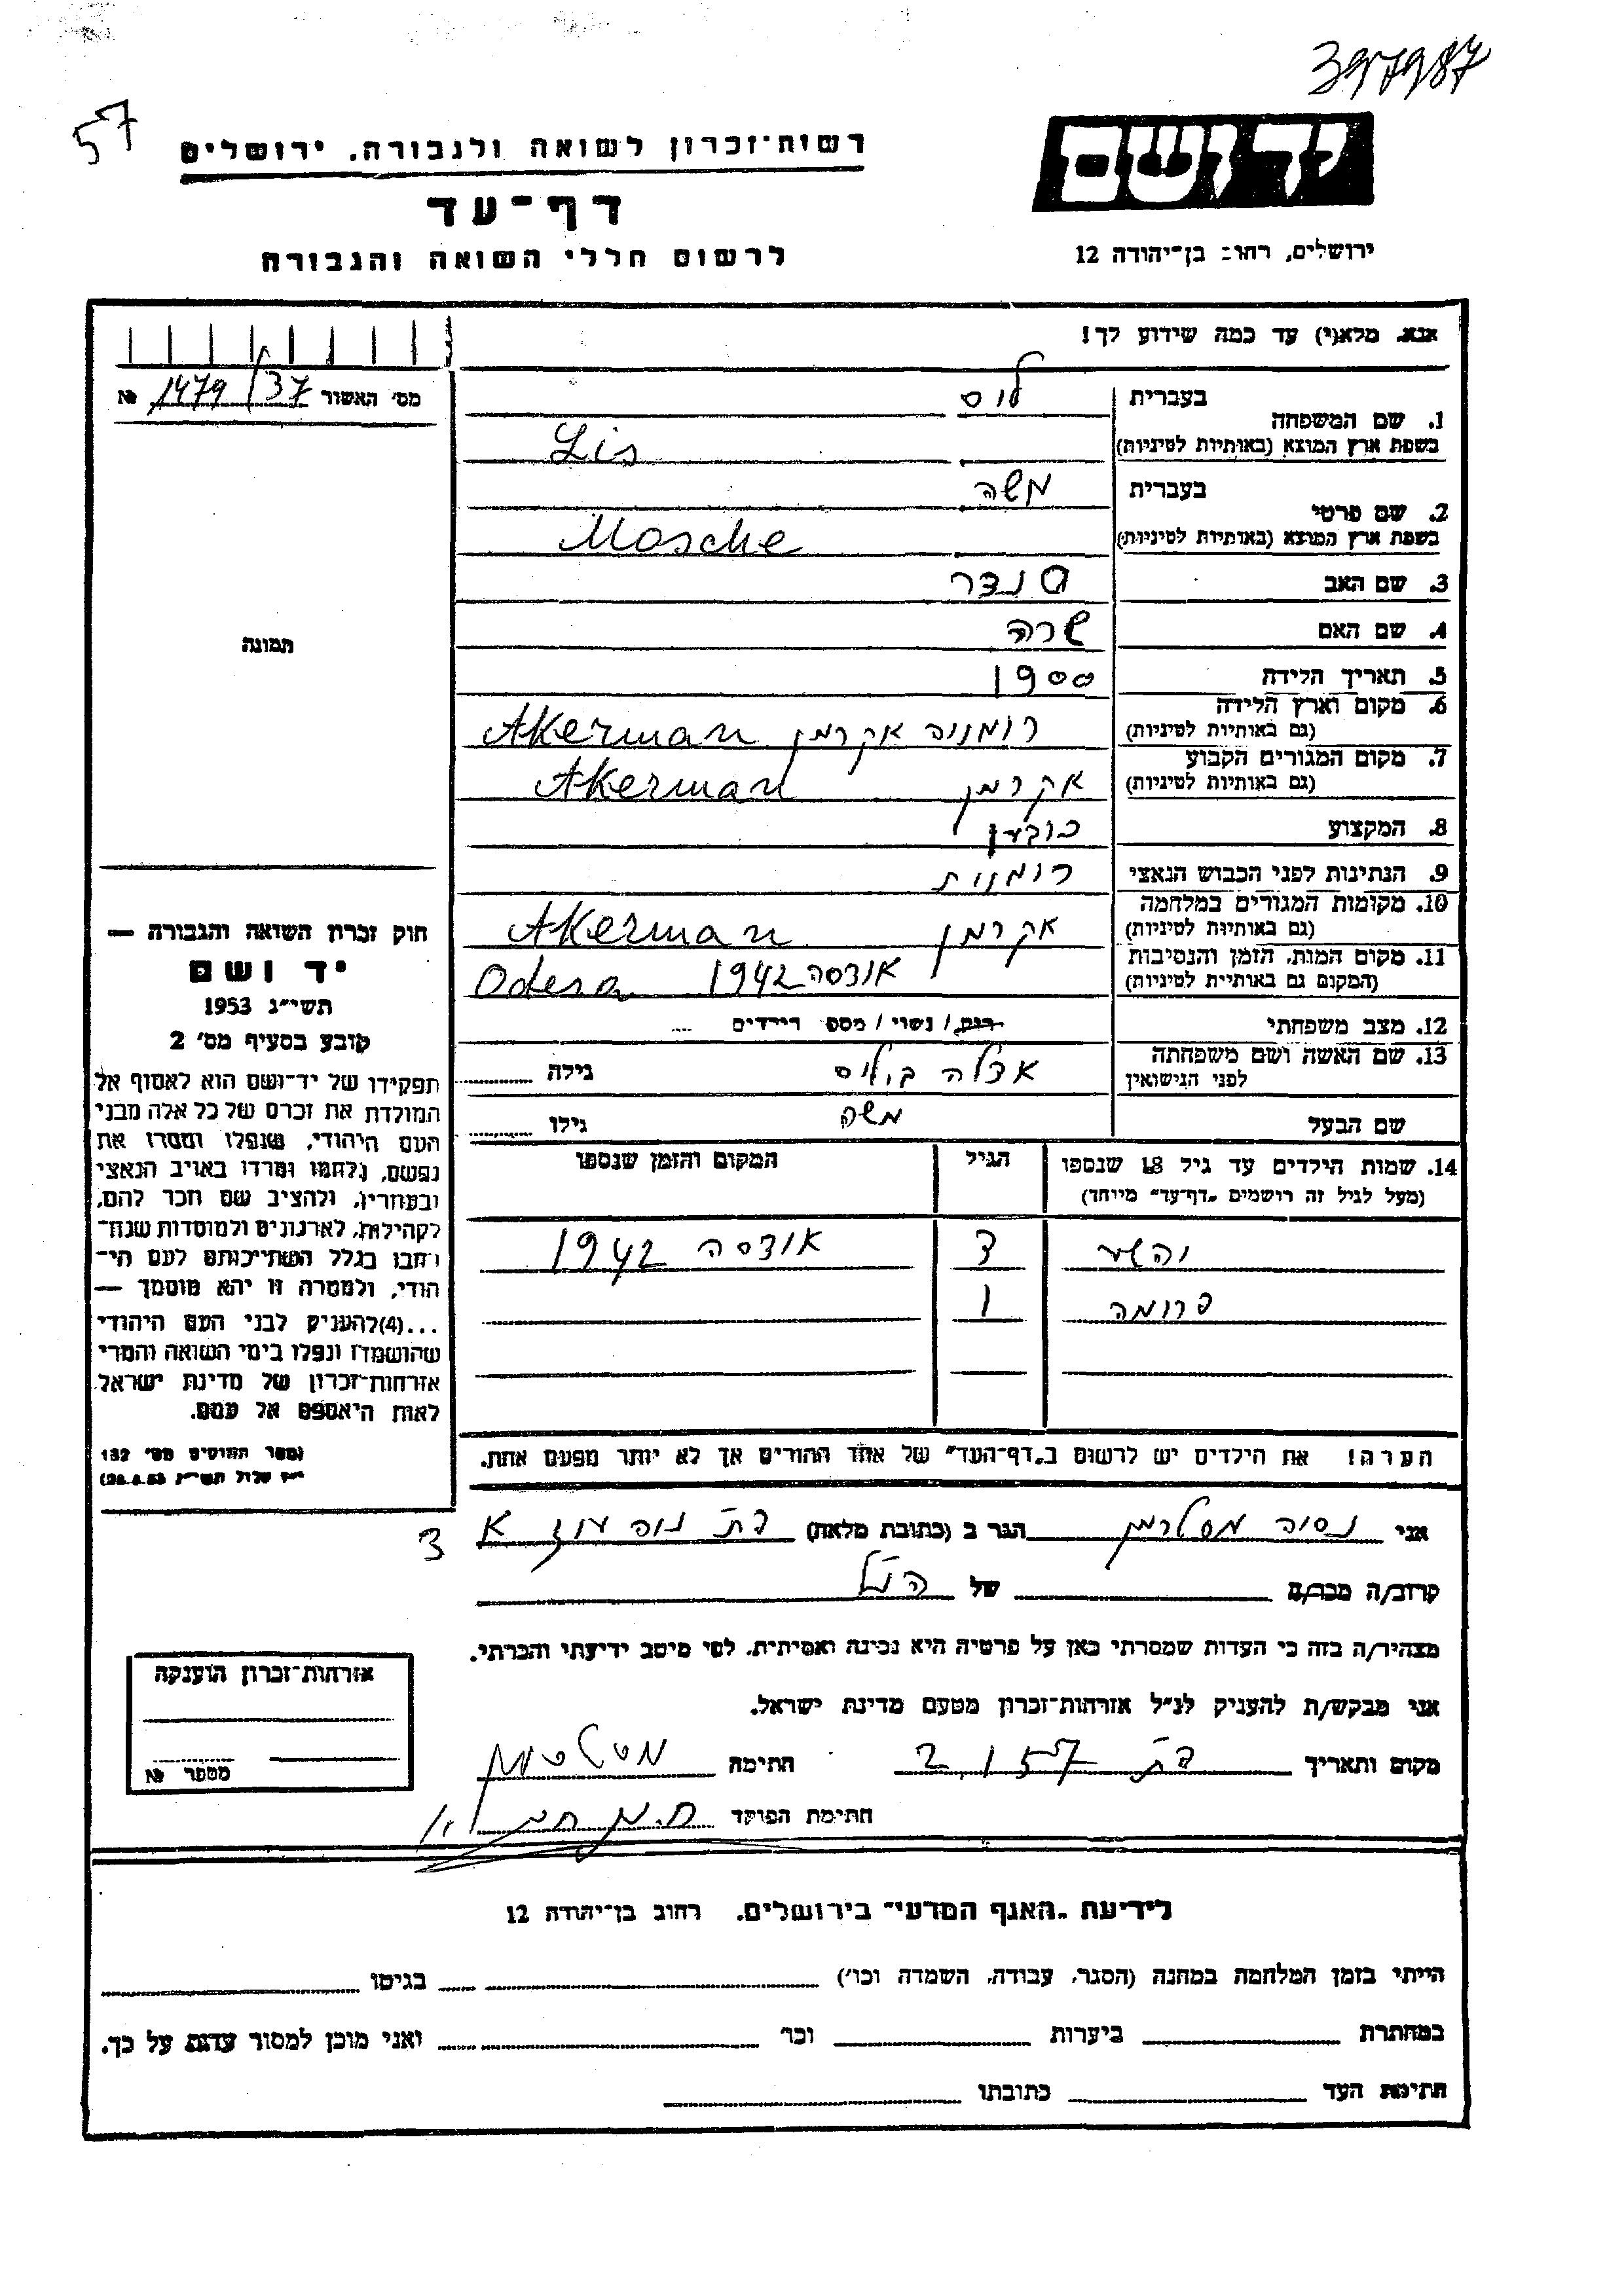 397987
57
יד ושם
רשות־זכרון לשואה ולגבורה, ירושלים
דף־עד
ירושלים, רחוב בן־יהודה 12
לרשום חללי השואה והגבורה
אנא, מלא(י) עד כמה שידוע לך!
מס׳ האשור 1479/37 №
1. שם המשפחה
בעברית ליס
בשפת ארץ המוצא (באותיות לטיניות) Lis
2. שם פרטי
בעברית משה
בשפת ארץ המוצא (באותיות לטיניות) Mosche
3. שם האב סנדר
4. שם האם שרה
5. תאריך הלידה 1900
6. מקום וארץ הלידה
(גם באותיות לטיניות) רומניה אקרמן Akerman
7. מקום המגורים הקבוע
(גם באותיות לטיניות) אקרמן Akerman
8. המקצוע כובען
9. הנתינות לפני הכבוש הנאצי רומנית
10. מקומות המגורים במלחמה
(גם באותיות לטיניות) אקרמן Akerman
11. מקום המות, הזמן והנסיבות
(המקום גם באותיות לטיניות) אודסה 1942 Odesa
12. מצב משפחתי רווק / נשוי / מספ׳ הילדים
13. שם האשה ושם משפחתה
לפני הנישואין אדלה גילה
שם הבעל משה גילו
14. שמות הילדים עד גיל 18 שנספו הגיל המקום והזמן שנספו
(מעל לגיל זה רושמים „דף־עד” מיוחד)
3 אודסה 1942
פרומה 1
הערה! את הילדים יש לרשום ב„דף־העד” של אחד ההורים אך לא יותר מפעם אחת.
תמונה
חוק זכרון השואה והגבורה —
יד ושם
תשי״ג 1953
קובע בסעיף מס׳ 2
תפקידו של יד־ושם הוא לאסוף אל
המולדת את זכרם של כל אלה מבני
העם היהודי, שנפלו ומסרו את
נפשם, נלחמו ומרדו באויב הנאצי
ובעוזריו, ולהציב שם וזכר להם,
לקהילות, לארגונים ולמוסדות שנח־
רבו בגלל השתייכותם לעם הי־
הודי, ולמטרה זו יהא מוסמך —
...(4) להעניק לבני העם היהודי
שהושמדו ונפלו בימי השואה והמרי
אזרחות־זכרון של מדינת ישראל
לאות היאספם אל עמם.
(ספר החוקים מס׳ 132
י״ז אלול תשי״ג 28.8.53)
אני נסיה הגר ב (כתובת מלאה) בת נוה עוז א 3
קרוב/ה מכר/ה של הנ״ל
מצהיר/ה בזה כי העדות שמסרתי כאן על פרטיה היא נכונה ואמיתית, לפי מיטב ידיעתי והכרתי.
אני מבקש/ת להעניק לנ״ל אזרחות־זכרון מטעם מדינת ישראל.
מקום ותאריך חתימה
חתימת הפוקד
אזרחות־זכרון הוענקה
מספר №
לידיעת „האגף המדעי” בירושלים, רחוב בן־יהודה 12
הייתי בזמן המלחמה במחנה (הסגר, עבודה, השמדה וכו׳) בגיטו
במחתרת ביערות וכו׳ ואני מוכן למסור עדות על כך.
חתימת העד כתובתו